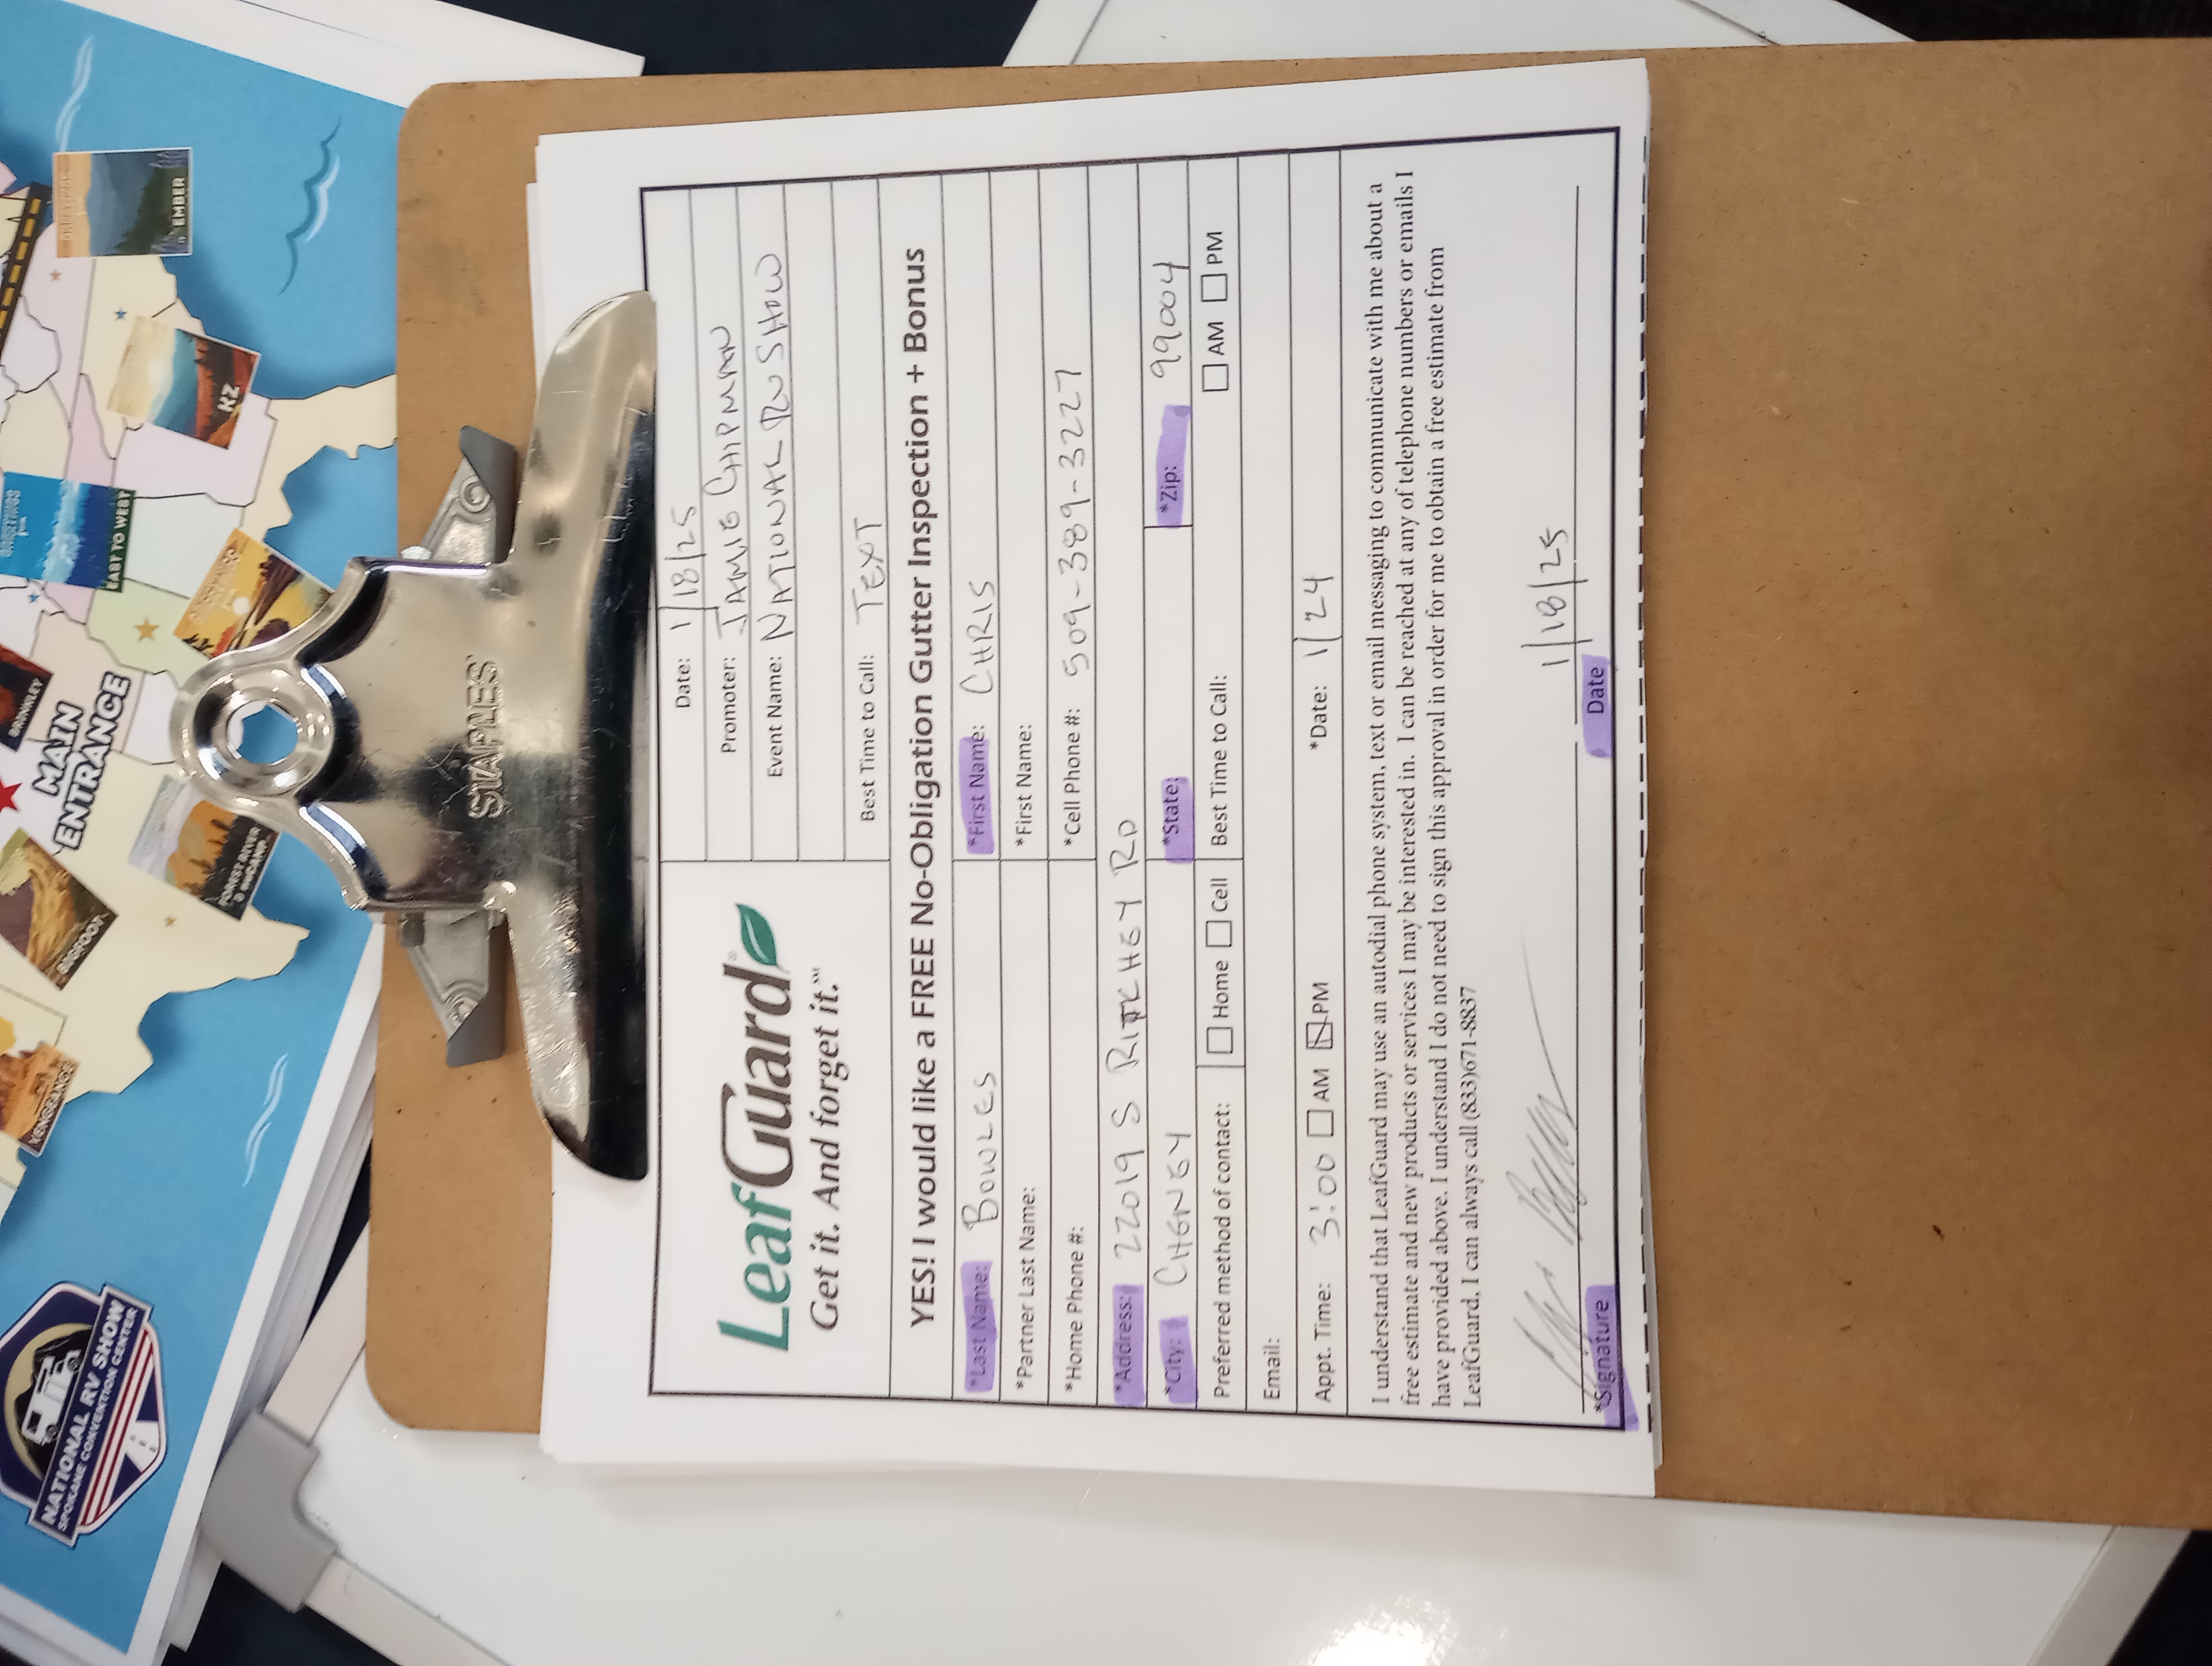 NATIONAL RV SHOW
SPOKANE CONVENTION CENTER
VENGEANCE
BIGFOOT
MAIN
ENTRANCE
BRINKLEY
GREETINGS
EAST TO WEST
GREETINGS
EMBER
KZ
FOREST RIVER
STAPLES
LeafGuard®
Get it. And forget it.℠
Date: 1/18/25
Promoter: JAMIE CHIPMAN
Event Name: NATIONAL RV SHOW
Best Time to Call: TEXT
YES! I would like a FREE No-Obligation Gutter Inspection + Bonus
*Last Name: BOWLES *First Name: CHRIS
*Partner Last Name: *First Name:
*Home Phone #: *Cell Phone #: 509-389-3227
*Address: 22019 S RITCHEY RD
*City: CHENEY *State: *Zip: 99004
Preferred method of contact: Home Cell Best Time to Call: AM PM
Email:
Appt. Time: 3:00 AM PM *Date: 1/24
I understand that LeafGuard may use an autodial phone system, text or email messaging to communicate with me about a
free estimate and new products or services I may be interested in. I can be reached at any of telephone numbers or emails I
have provided above. I understand I do not need to sign this approval in order for me to obtain a free estimate from
LeafGuard, I can always call (833)671-8837
1/18/25
*Signature Date